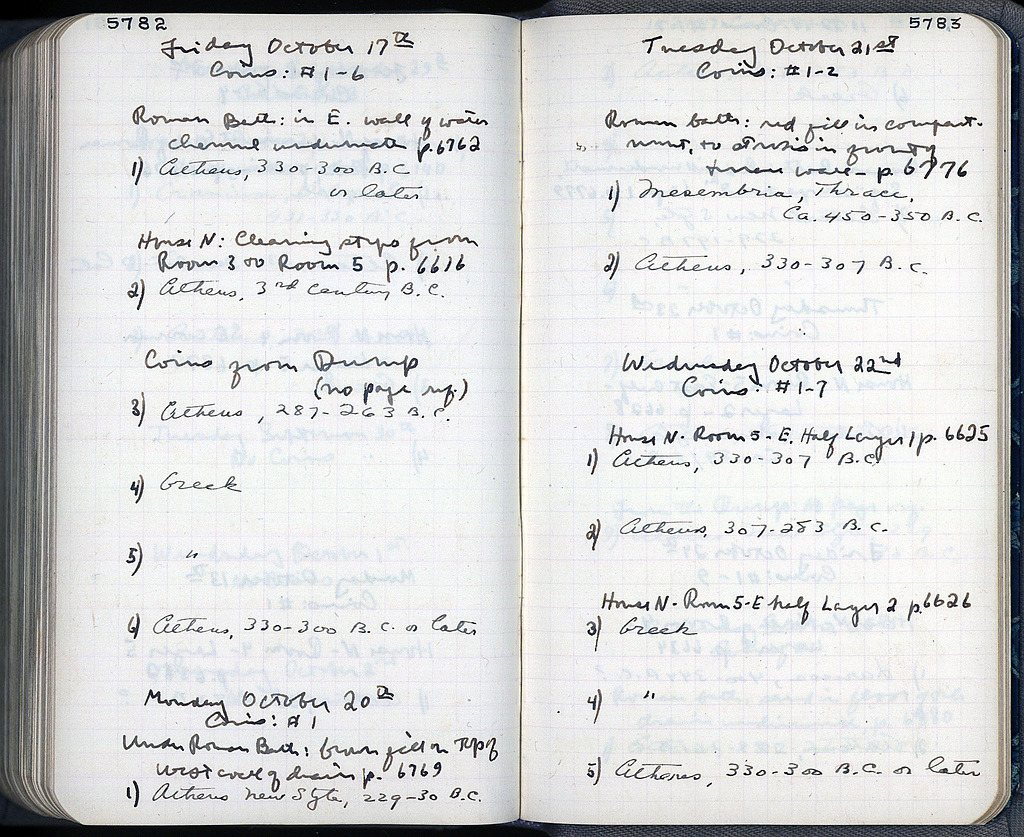 5782
Friday October 17th
Coins: #1-6
Roman Bath: in E. wall of water
channel underneath p. 6762
1) Athens, 330-300 B.C.
or later
House N: Cleaning strips from
Room 3 to Room 5 p. 6616
2) Athens, 3rd century B.C.
Coins from Dump
(no page ref.)
3) Athens, 287-263 B.C.
4) Greek
5) "
6) Athens, 330-300 B.C. or later
Monday October 20th
Coins: #1
Under Roman Bath: brown fill on top of
west wall of drain p. 6769
1) Athens New Style, 229-30 B.C.
5783
Tuesday October 21st
Coins: #1-2
Roman bath: red fill in compart-
ment, to strosis in front of
p. 6776
1) Mesembria, Thrace,
Ca. 450-350 B.C.
2) Athens, 330-307 B.C.
Wednesday October 22nd
Coins: #1-7
House N-Room 5-E. Half Layer 1 p. 6625
1) Athens, 330-307 B.C.
2) Athens, 307-283 B.C.
House N-Room 5-E half Layer 2 p. 6626
3) Greek
4) "
5) Athens, 330-300 B.C. or later